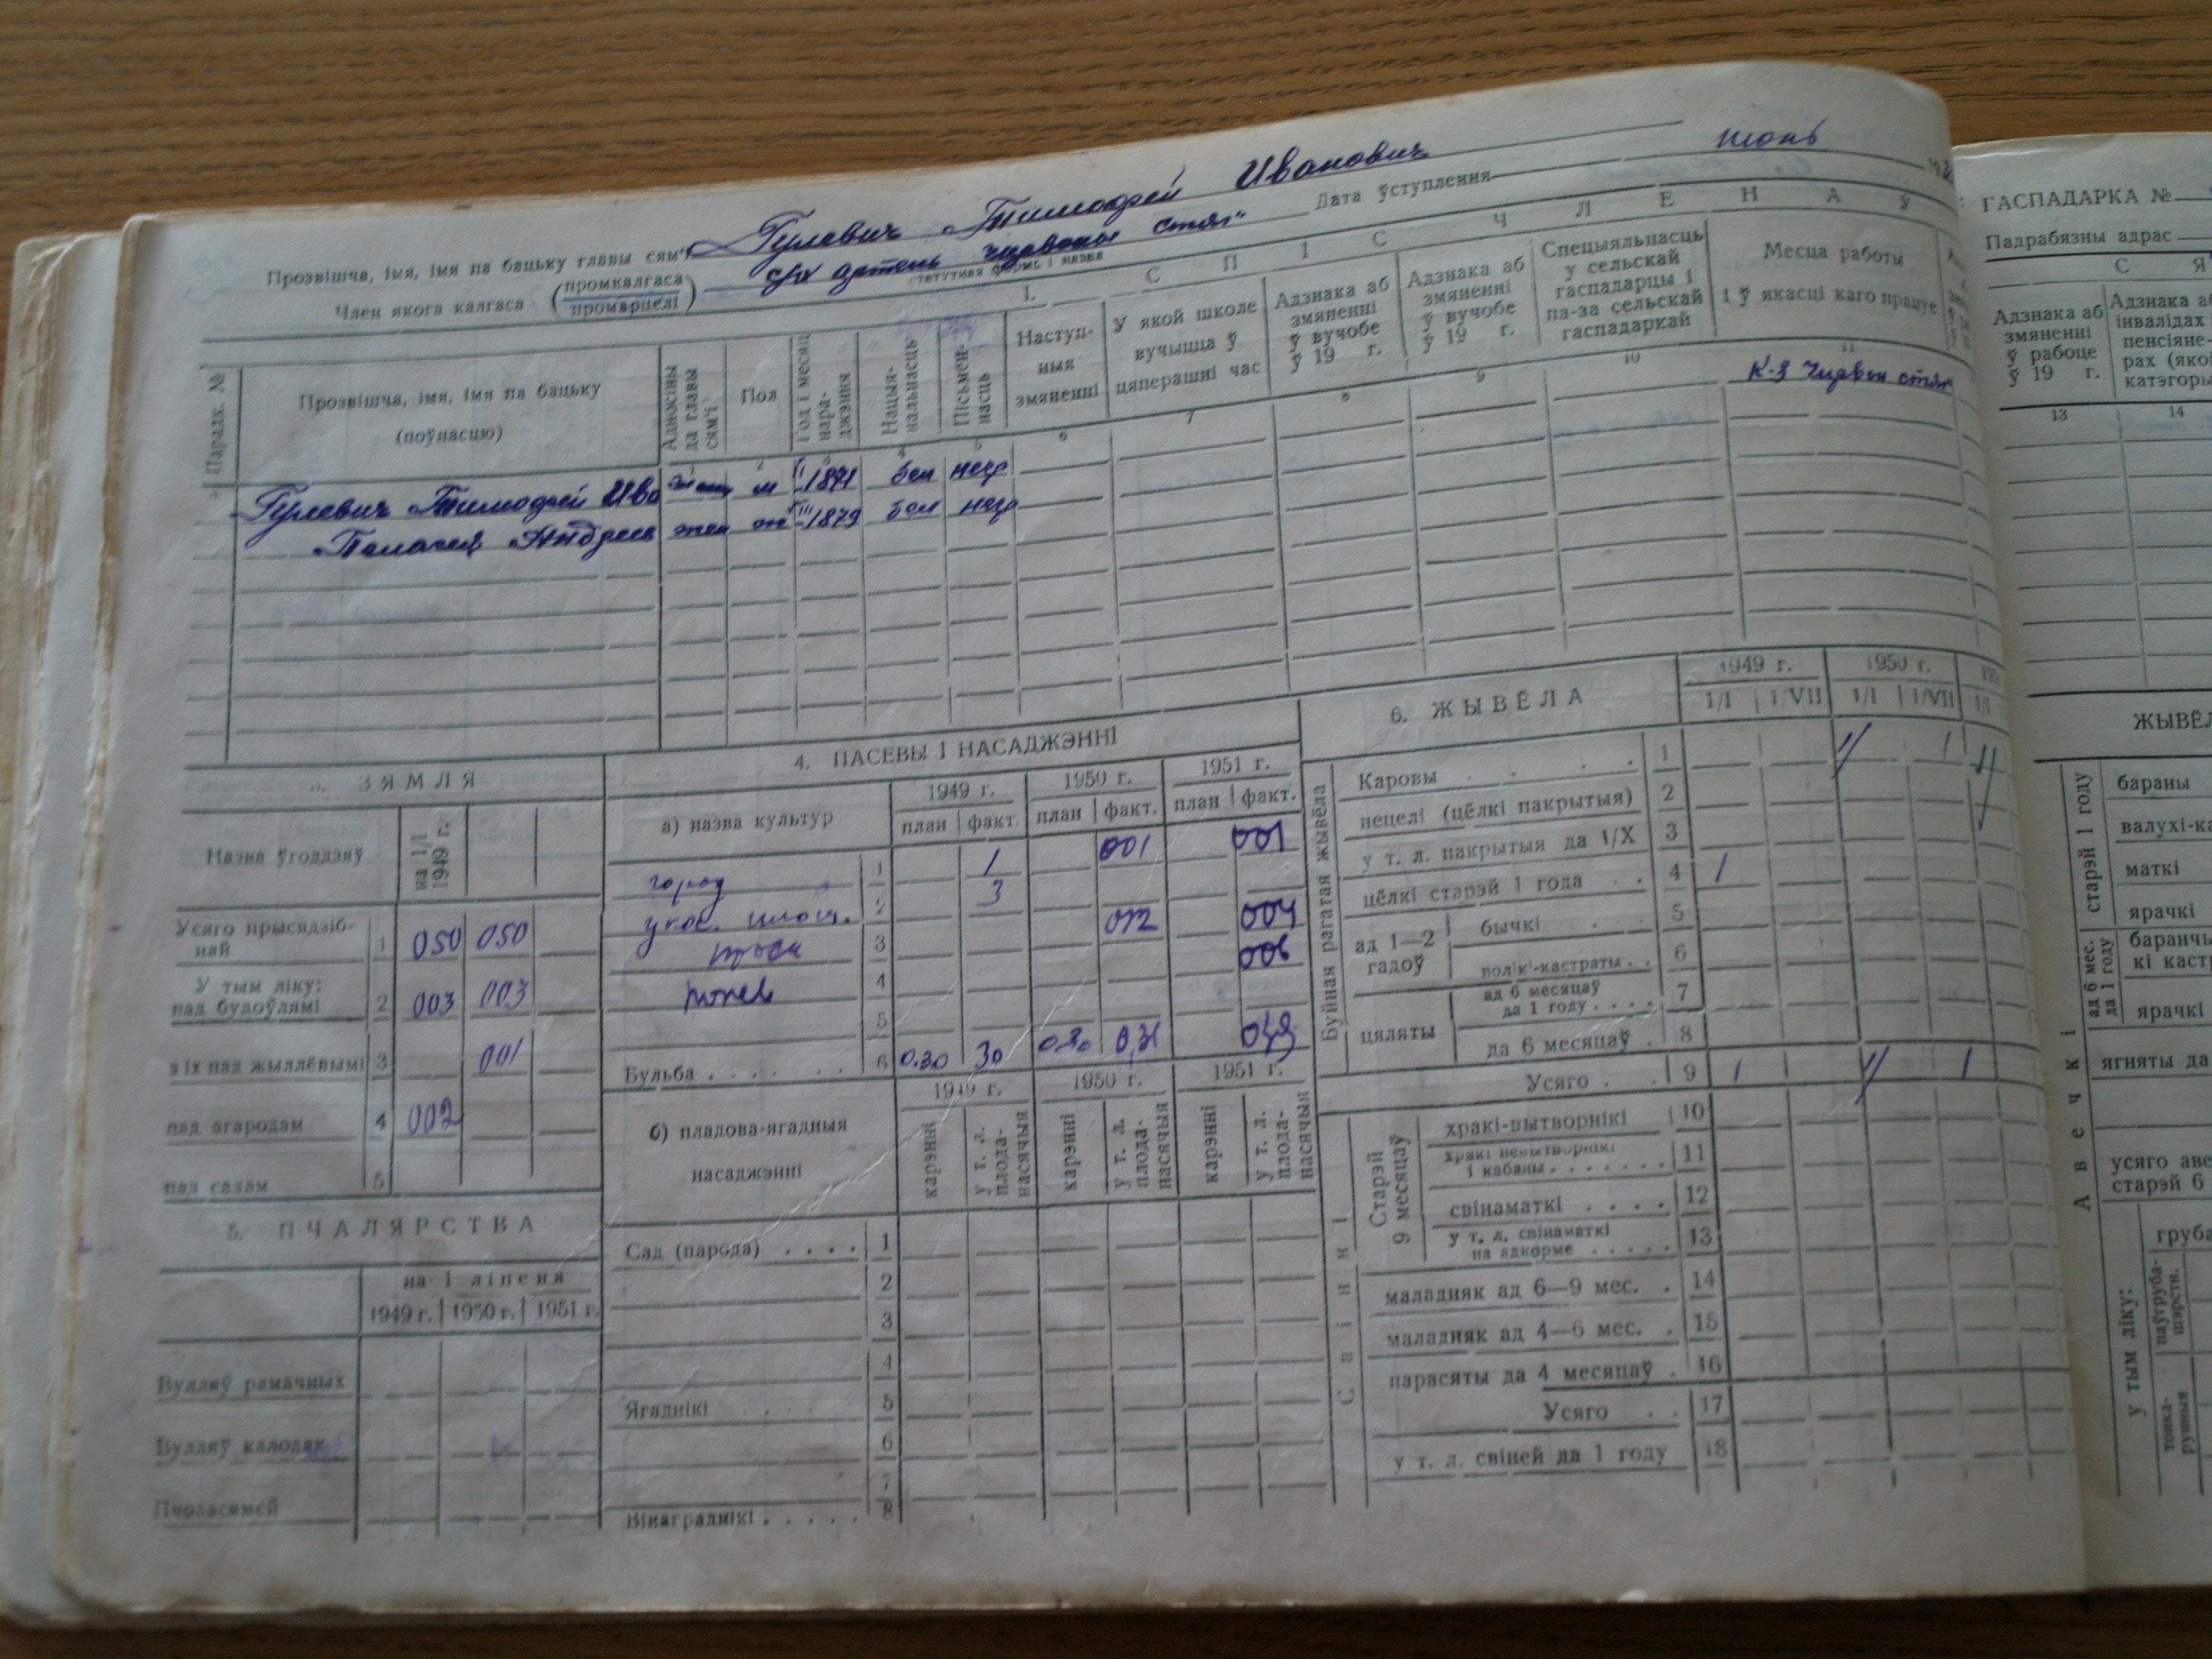 Прозвішча, імя, імя па бацьку главы сям'і Гулевич Тимофей Иванович
Член якога калгаса (промкалгаса промарцелі) с/х артель Чырвоны стяг"
статутная форма і назва
Дата ўступлення июнь
1. СПІС ЧЛЕНАЎ
Парадк. №
Прозвішча, імя, імя па бацьку (поўнасцю)
Адносіны да главы сям'і
Пол
Год і месяц нараджэння
Нацыянальнасць
Пісьменнасць
Наступныя змяненні
У якой школе вучыцца ў цяперашні час
Адзнака аб змяненні ў вучобе ў 19 г.
Адзнака аб змяненні ў вучобе ў 19 г.
Спецыяльнасць у сельскай гаспадарцы і па-за сельскай гаспадаркай
Месца работы і ў якасці каго працуе
2 3 4 5 6 7 8 9 10 11
Гулевич Тимофей Ива м 1871 бел негр К-з Чирвон стяг
Пелагея Андреев жен 1879 бел негр
ЗЯМЛЯ
Назва ўгоддзяў
на 1/I 1949 г.
Усяго прысядзібнай 1 050 050
У тым ліку: пад будоўлямі 2 003 003
з іх пад жыллёвымі 3 001
пад агародам 4 002
пад садам 5
5. ПЧАЛЯРСТВА
на 1 ліпеня
1949 г. 1950 г. 1951 г.
Вулляў рамачных
Вулляў калодак
Пчоласямей
4. ПАСЕВЫ І НАСАДЖЭННІ
а) назва культур
1949 г. 1950 г. 1951 г.
план факт. план факт. план факт.
город 1 1 001 001
2 3
3 004
4 006
5
Бульба 6 0.30 30
1949 г. 1950 г. 1951 г.
б) пладова-ягадныя насаджэнні
карэнні у т. л. плоданасячыя карэнні у т. л. плоданасячыя карэнні у т. л. плоданасячыя
Сад (парода) 1
2
3
4
Ягаднікі 5
6
7
Вінаграднікі 8
6. ЖЫВЁЛА
1949 г. 1950 г.
1/I 1/VII 1/I 1/VII 1/I
Буйная рагатая жывёла
Каровы 1 1 1
нецелі (цёлкі пакрытыя) 2
у т. л. пакрытыя да 1/X 3
цёлкі старэй 1 года 4 1
ад 1—2 гадоў
бычкі 5
волікі-кастраты 6
цяляты
ад 6 месяцаў да 1 году 7
да 6 месяцаў 8
Усяго 9 1 1 1
Свінні
Старэй 9 месяцаў
хракі-вытворнікі 10
хракі невытворнікі і кабаны 11
свінаматкі 12
у т. л. свінаматкі на адкорме 13
маладняк ад 6—9 мес. 14
маладняк ад 4—6 мес. 15
парасяты да 4 месяцаў 16
Усяго 17
у т. л. свіней да 1 году 18
ГАСПАДАРКА №
Падрабязны адрас
С Я
Адзнака аб змяненні ў рабоце ў 19 г.
13 14
ЖЫВЁЛ
Авечкі
старэй 1 году
бараны
маткі
ярачкі
ад 6 мес. да 1 году
ярачкі
ягняты да
старэй 6
у тым ліку: